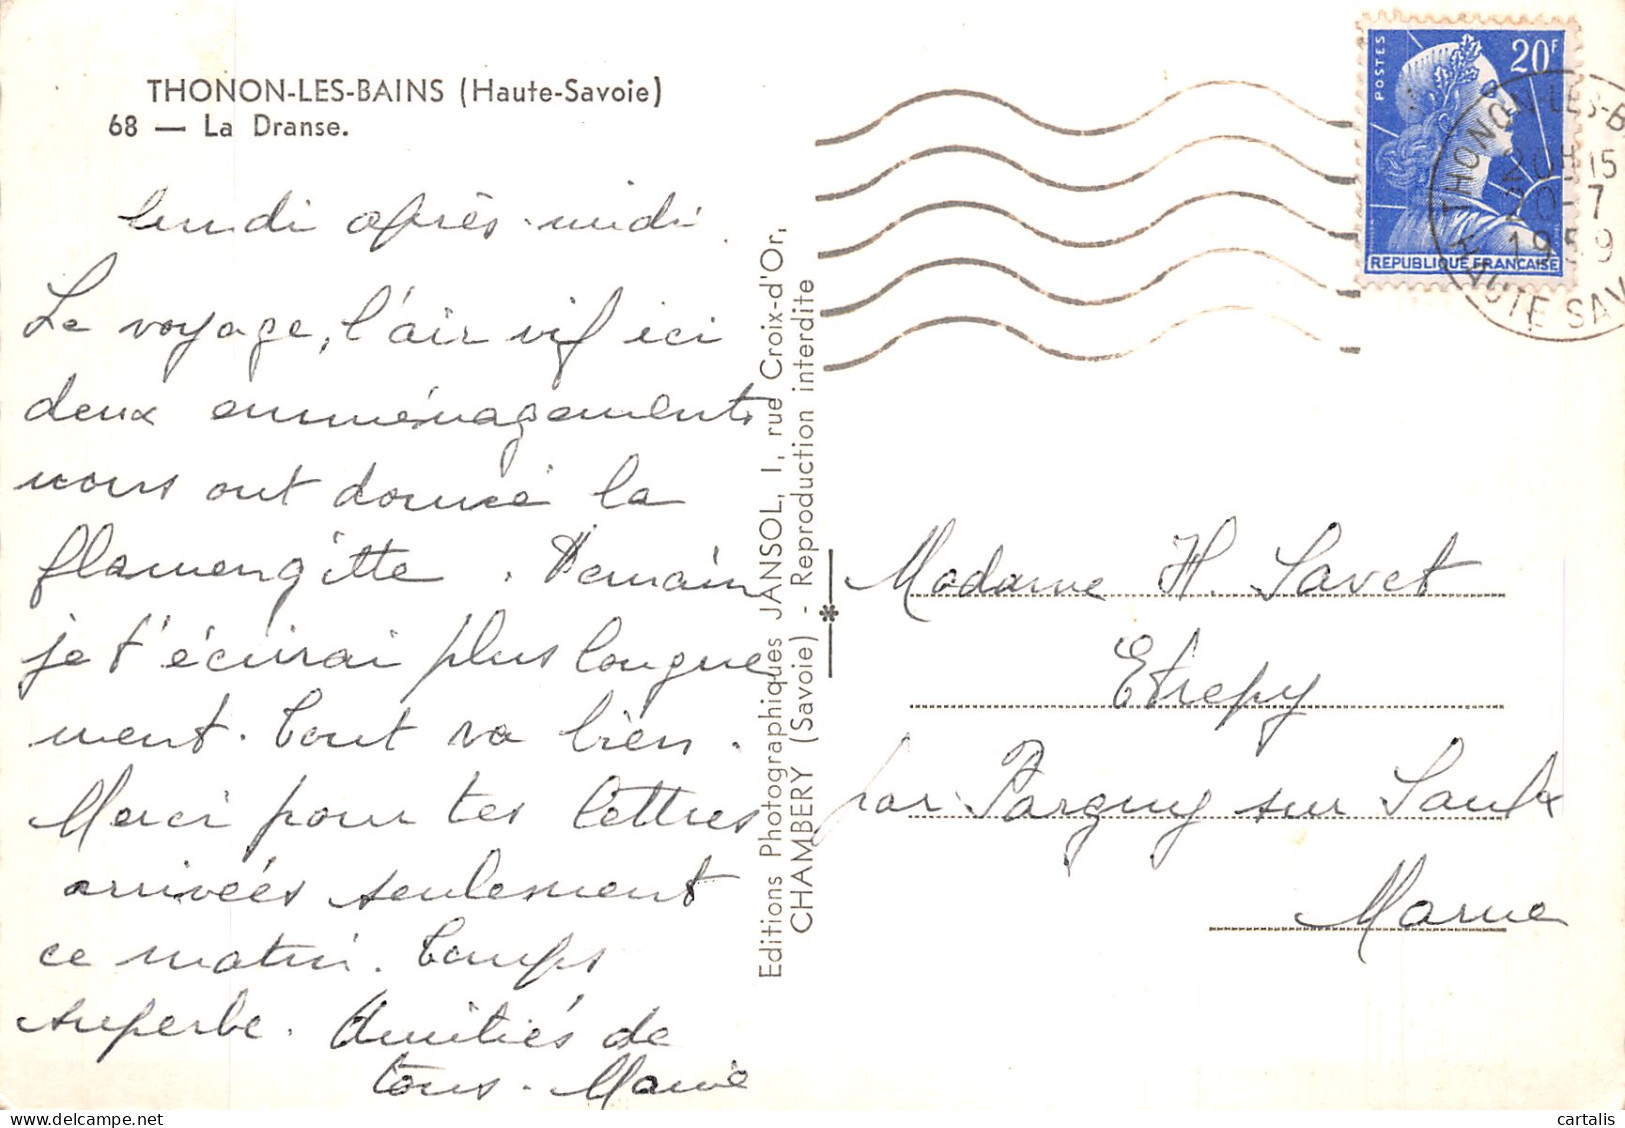 THONON-LES-BAINS (Haute-Savoie)
68 — La Dranse.
lundi après-midi.
Le voyage, l'air vif ici
deux emménagements
nous ont donné la
flamengitte. Demain
je t'écrirai plus longue
ment. Tout va bien.
Merci pour tes lettres
arrivées seulement
ce matin. Temps
superbe. Amitiés de
tous. Mamie
Editions Photographiques JANSOL, 1, rue Croix-d'Or,
CHAMBERY (Savoie) - Reproduction interdite
POSTES
20F
REPUBLIQUE FRANCAISE
THONON-LES-B
20H15
20-7
1959
HAUTE SAV
Madame H. Savet
Etrepy
par Pargny sur Saulx
Marne
cartalis